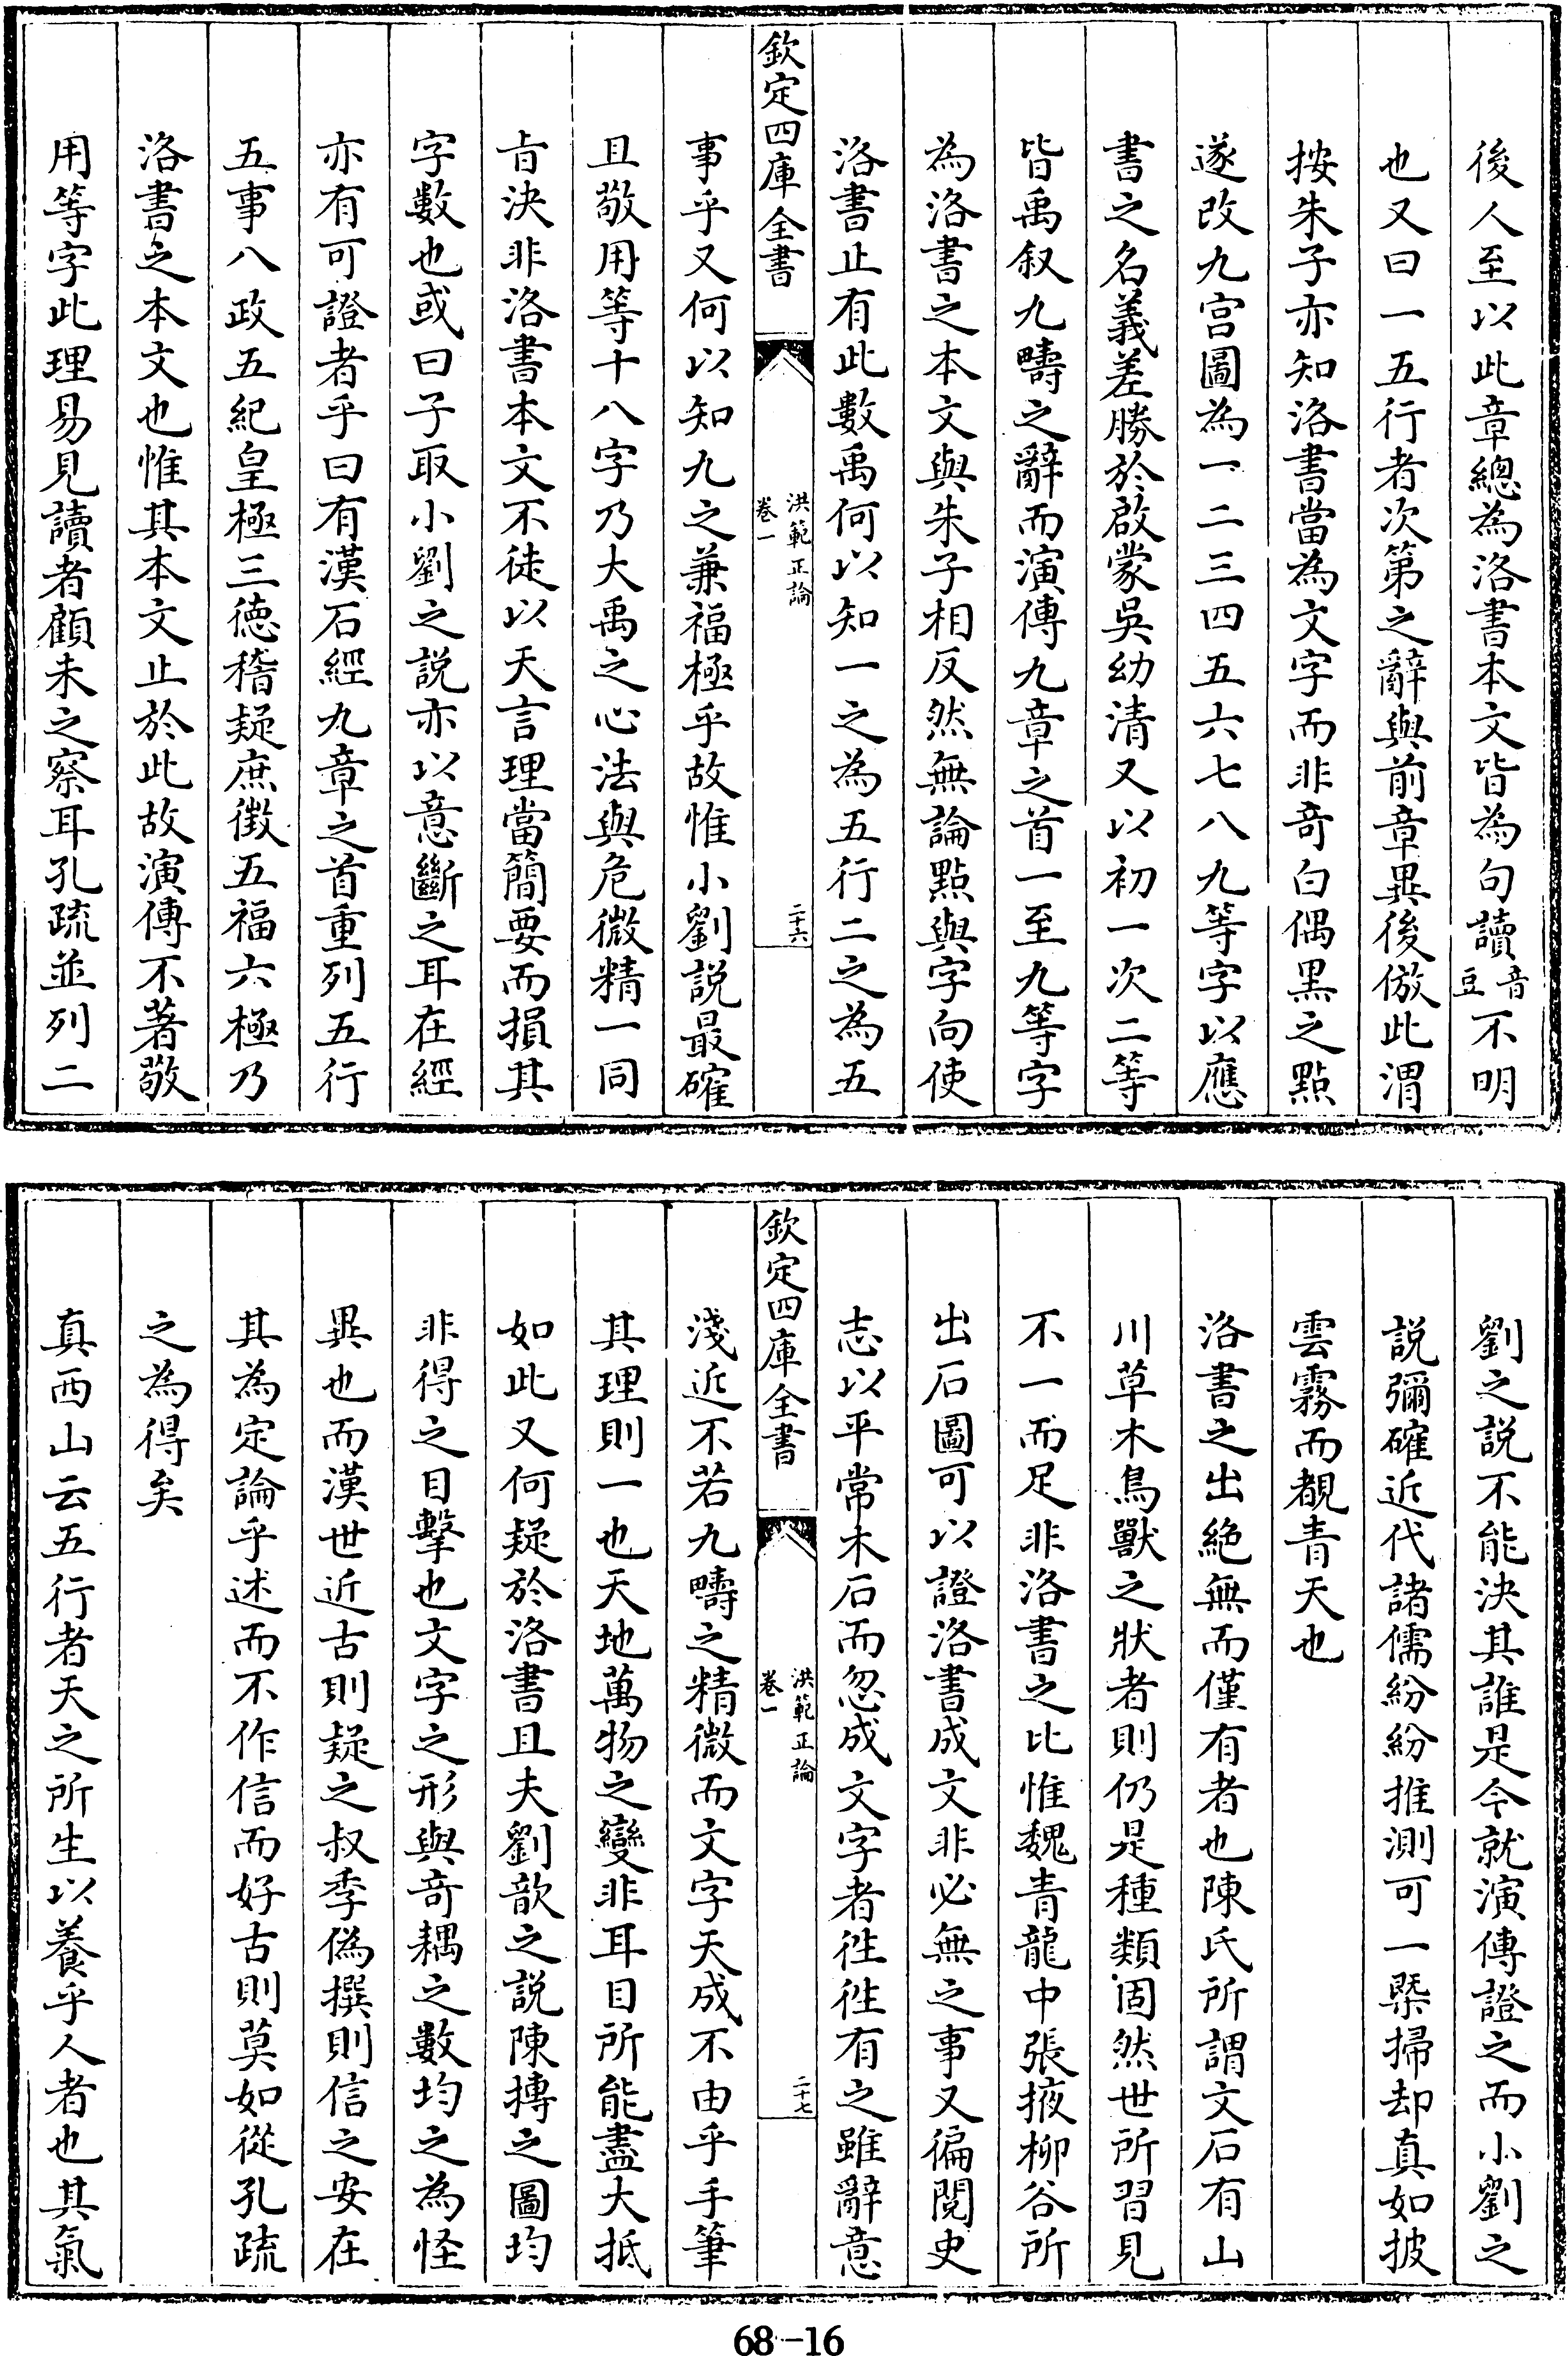 後人至以此章總為洛書本文皆為句讀音豆不明
也又曰一五行者次第之辭與前章異後倣此謂
按朱子亦知洛書當為文字而非竒白偶黑之點
遂改九宫圖為一二三四五六七八九等字以應
書之名義差勝於啟蒙吳幼清又以初一次二等
皆禹叙九疇之辭而演傳九章之首一至九等字
為洛書之本文與朱子相反然無論㸃與字向使
洛書止有此數禹何以知一之為五行二之為五
欽定四庫全書
洪範正論
卷一
二十六
事乎又何以知九之兼福極乎故惟小劉説最確
且敬用等十八字乃大禹之心法與危微精一同
㫖決非洛書本文不徒以天言理當簡要而損其
字數也或曰子取小劉之説亦以意斷之耳在經
亦有可證者乎曰有漢石經九章之首重列五行
五事八政五紀皇極三德稽疑庶徴五福六極乃
洛書之本文也惟其本文止於此故演傳不著敬
用等字此理易見讀者顧未之察耳孔疏並列二
劉之説不能決其誰是今就演傳證之而小劉之
説彌確近代諸儒紛紛推測可一槩掃却真如披
雲霧而覩青天也
洛書之出絶無而僅有者也陳氏所謂文石有山
川草木鳥獸之狀者則仍是種類固然世所習見
不一而足非洛書之比惟魏青龍中張掖柳谷所
出石圖可以證洛書成文非必無之事又徧閱史
志以平常木石而忽成文字者徃徃有之雖辭意
欽定四庫全書
洪範正論
卷一
二十七
淺近不若九疇之精微而文字天成不由乎手筆
其理則一也天地萬物之變非耳目所能盡大抵
如此又何疑於洛書且夫劉歆之説陳摶之圖均
非得之目擊也文字之形與竒耦之數均之為怪
異也而漢世近古則疑之叔季偽撰則信之安在
其為定論乎述而不作信而好古則莫如從孔疏
之為得矣
真西山云五行者天之所生以養乎人者也其氣
68-16